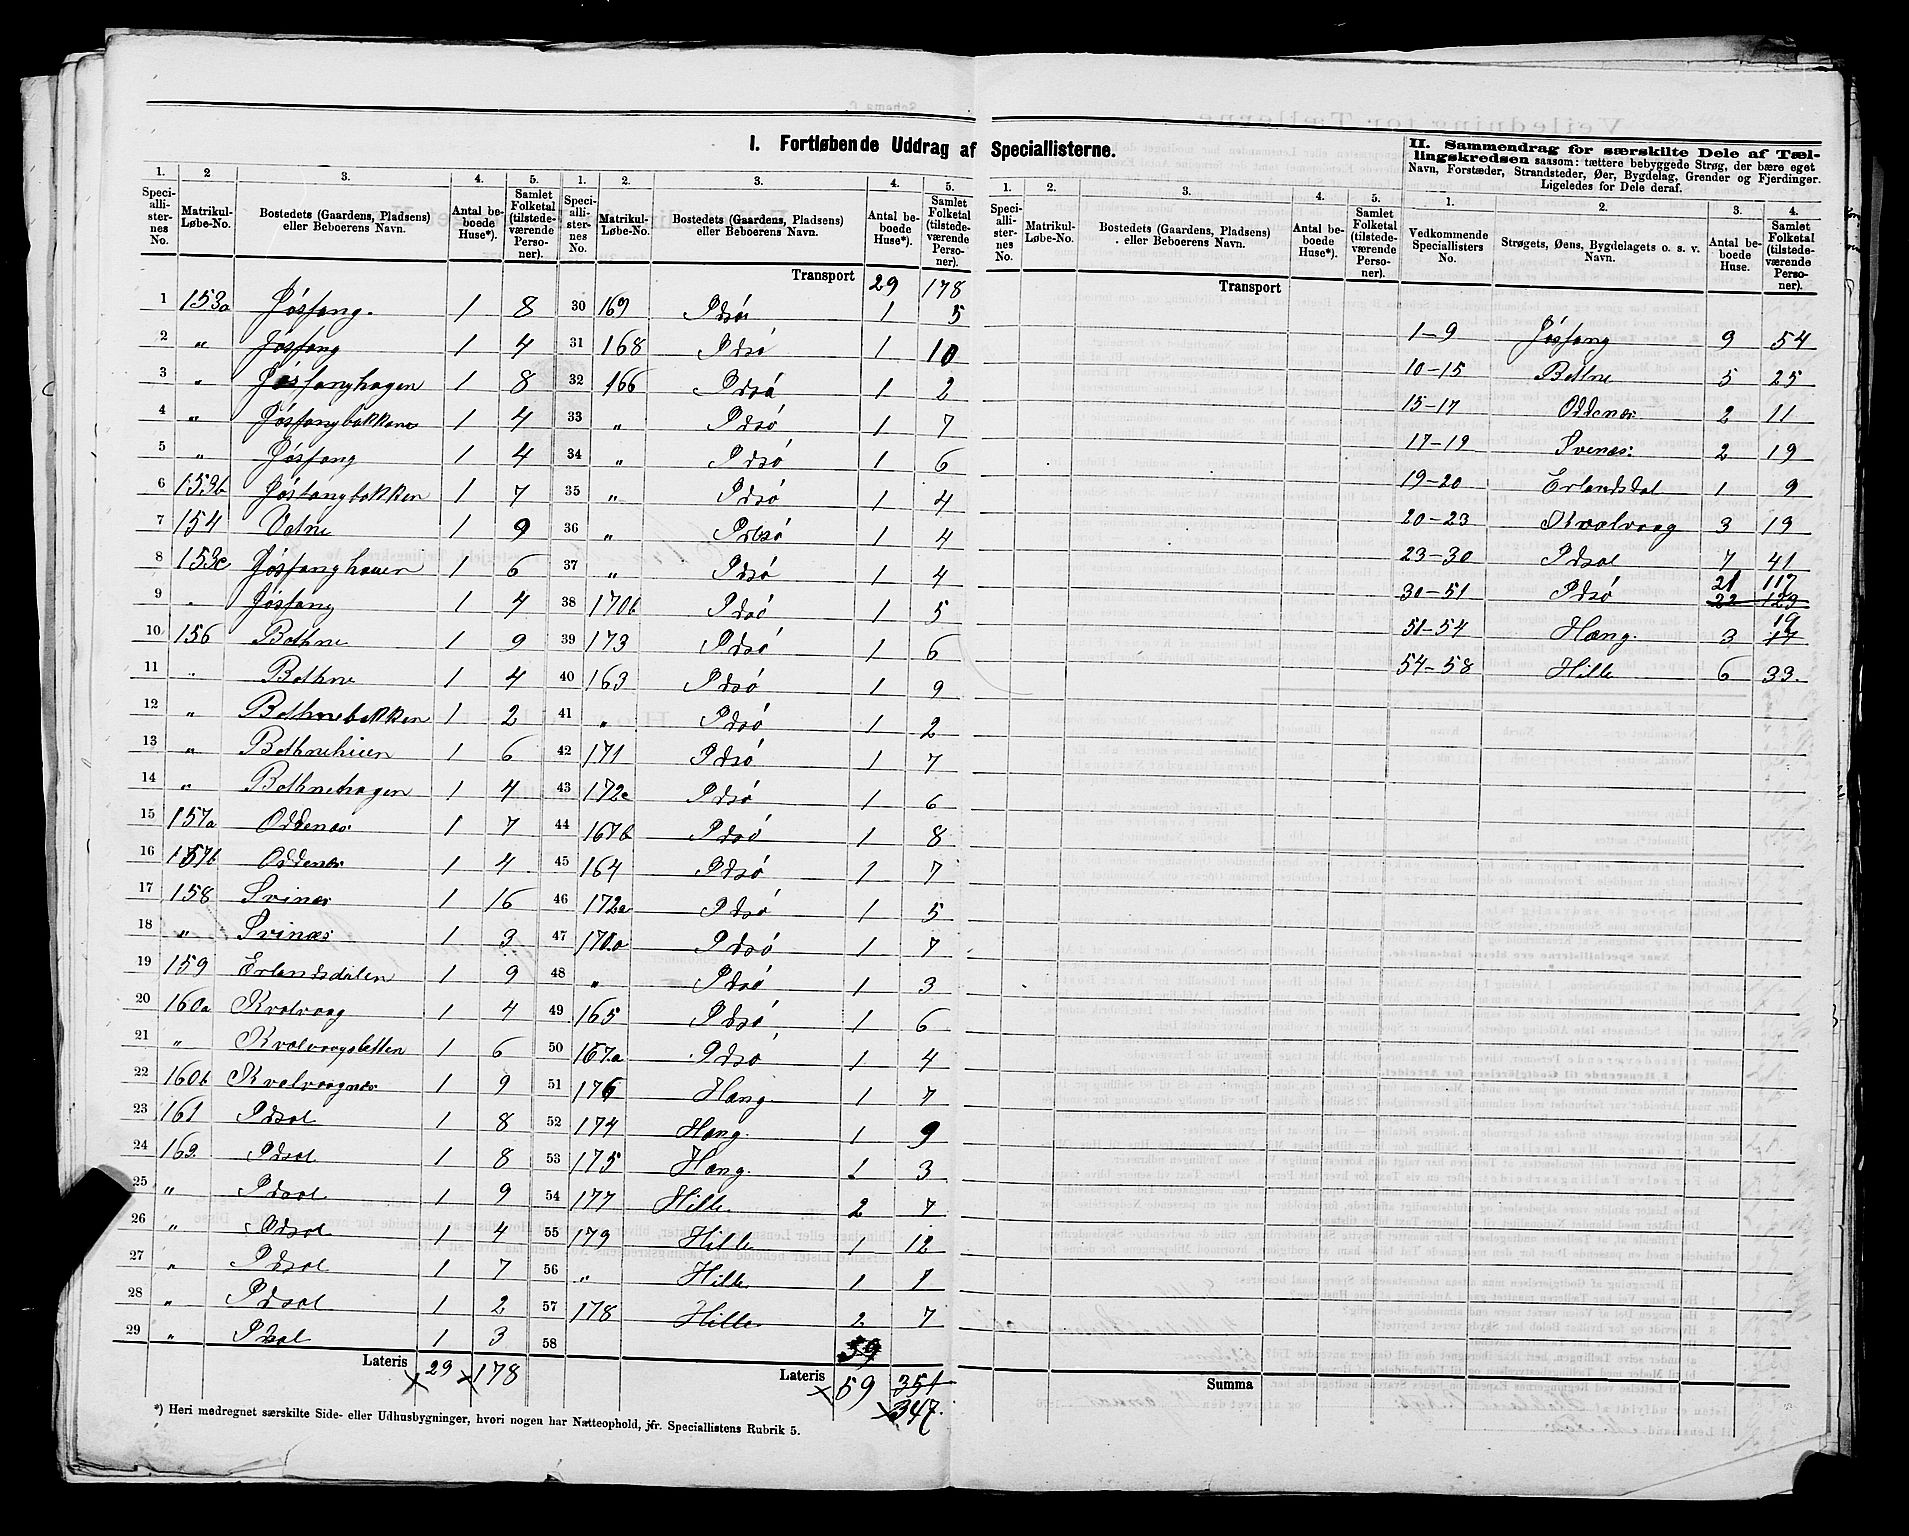 I. Fortløbende Uddrag af Speciallisterne.
II. Sammendrag for særskilte Dele af Tæl-
lingskredsen saasom: tættere bebyggede Strøg, der bære eget
Navn, Forstæder, Strandsteder, Øer, Bygdelag, Grender og Fjerdinger.
Ligeledes for Dele deraf.
1. 2 3. 4. 5. 1. 2. 3. 4. 5. 1. 2. 3. 4. 5. 1. 2. 3. 4.
Speciallisternes No. Matrikul-Løbe-No. Bostedets (Gaardens, Pladsens) eller Beboerens Navn. Antal beboede Huse*). Samlet Folketal (tilstedeværende Personer).
Speciallisternes No. Matrikul-Løbe-No. Bostedets (Gaardens, Pladsens) eller Beboerens Navn. Antal beboede Huse*). Samlet Folketal (tilstedeværende Personer).
Speciallisternes No. Matrikul-Løbe-No. Bostedets (Gaardens, Pladsens) eller Beboerens Navn. Antal beboede Huse*). Samlet Folketal (tilstedeværende Personer).
Vedkommende Speciallisters No. Strøgets, Øens, Bygdelagets o. s. v. Navn. Antal beboede Huse. Samlet Folketal (tilstedeværende Personer).
1 153a Jøsfang. 1 8
2 " Jøsfang 1 4
3 " Jøsfanghagen 1 8
4 " Jøsfangbakkene 1 4
5 " Jøsfang 1 4
6 153b Jøsfangbakken 1 7
7 154 Vatne 1 9
8 153c Jøsfanghauen 1 6
9 " Jøsfang 1 4
10 156 Bothne 1 9
11 " Bothne 1 4
12 " Bothnebakken 1 2
13 " Bothnehuen 1 6
14 " Bothnehagen 1 4
15 157a Oddenæs 1 7
16 157b Oddenæs 1 4
17 158 Svinæs 1 16
18 " Svinæs 1 3
19 159 Erlandsdalen 1 9
20 160a Kvalvaag 1 4
21 " Kvalvaagsletten 1 6
22 160b Kvalvaagnæs 1 9
23 161 Idsal 1 8
24 162 Idsal 1 8
25 " Idsal 1 9
26 " Idsal 1 4
27 " Idsal 1 7
28 " Idsal 1 2
29 " Idsal 1 3
Lateris 29 178
Transport 29 178
30 169 Idsø 1 5
31 168 Idsø 1 10
32 166 Idsø 1 2
33 " Idsø 1 7
34 " Idsø 1 6
35 " Idsø 1 4
36 " Idsø 1 4
37 " Idsø 1 4
38 170b Idsø 1 5
39 173 Idsø 1 6
40 163 Idsø 1 9
41 " Idsø 1 2
42 171 Idsø 1 7
43 172c Idsø 1 6
44 167b Idsø 1 8
45 164 Idsø 1 7
46 172a Idsø 1 5
47 170a Idsø 1 7
48 " Idsø 1 3
49 165 Idsø 1 6
50 167a Idsø 1 4
51 176 Hæng 1 7
52 174 Hæng 1 9
53 175 Hæng. 1 3
54 177 Hille. 2 7
55 179 Hille 1 12
56 " Hille 1 7
57 178 Hille 2 7
58 59
Lateris 59 351
347.
Transport
Summa
1-9 Jøsfang 9 54
10-15 Bothne 5 25
15-17 Oddenæs 2 11
17-19 Svenæs: 2 19
19-20 Erlandsdal 1 9
20-23 Kvalvaag 3 19
23-30 Idsal 7 41
21 117
30-51 Idsø 22 123
19
51-54 Hæng. 3 17
54-58 Hille 6 33.
*) Heri medregnet særskilte Side- eller Udhusbygninger, hvori nogen har Natteophold, jfr. Speciallistens Rubrik 5.